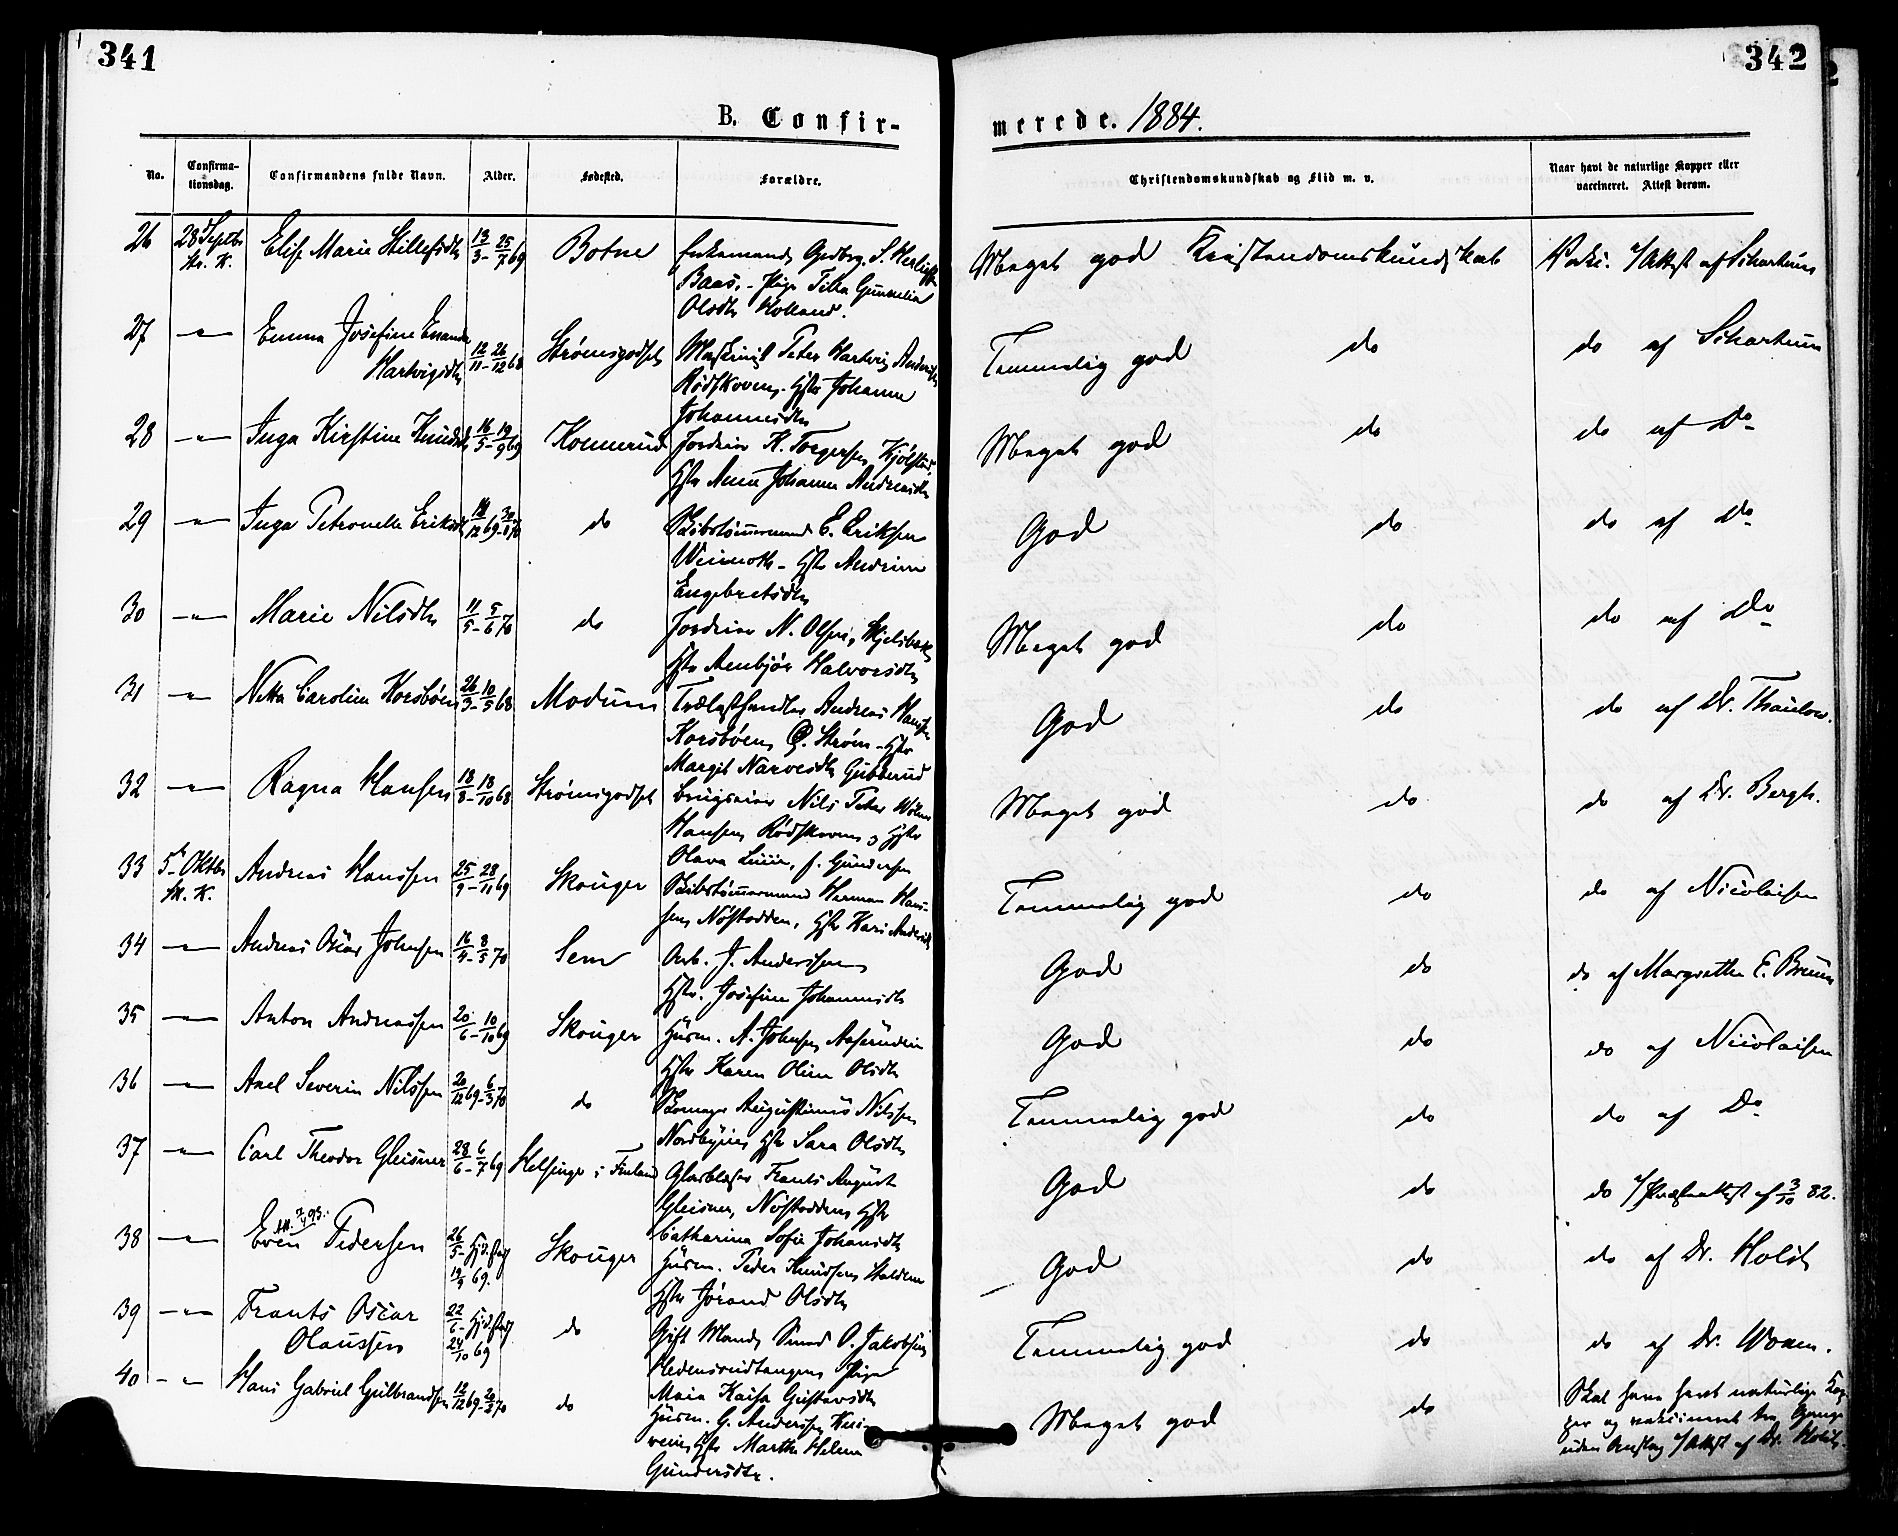 341
342
B. Confir-
merede. 1884.
No.
Confirma-
tionsdag.
Confirmandens fulde Navn.
Alder.
Fødested.
Forældre.
Christendomskundskab og Flid m. v.
Naar havt de naturlige Kopper eller
vaccineret. Attest derom.
26 28 Septbr Elise Marie 13/3 - 25/7 69 Botne Enkemand, Gbdbrg. S.
St. K. Baas, - Pige
Olsdtr Holland.
Meget god Kristendomskundskab Vakc. e/Attest af Scharkum
27 -"- Emma Josefine 12/11 - 26/12 68 Strømsgodset Peter Hartvig
Hartvigsdtr Hstr Johanne
Johannesdtr
Temmelig god do do af Scharkum
28 -"- Inga Kirstine Knudsd 16/5 - 19/9 69 Konnerud Jordeier K. Torgersen
Hstr Anne Johanne Andreasdtr
Meget god do do af Do
29 -"- Inga Petronelle Eriksdtr 14/12 69 - 30/1 70 do Skibstømmermand E. Eriksen
Hstr Andrine
Engebretsdtr
God do do af Do
30 -"- Marie Nilsdtr 11/5 - 5/6 70 do Jordeier N. Olsen,
Hstr Anebjør Halvorsdtr
Meget god do do af Do
31 -"- Netta Caroline Korsbøen 26/3 - 10/5 68 Modum Trælasthandler Andreas
Korsbøen, Strøm - Hstr
Margit Narvesdtr Gubberud
God do do af Dr. Thaulow.
32 -"- Ragna Hansen 18/8 - 18/10 68 Strømsgodset Brugseier Nils Peter
Hansen, Rødskoven, og Hstr
Olava f. Gundersen
Meget god do do af Dr. Bergh.
33 5. Oktbr Andreas Hanssen 25/9 - 28/11 69 Skouger Skibstømmermand Herman Hans-
St. K. sen, Nøstodden, Hstr Kari
Temmelig god do do af Nicolaisen
34 -"- Andreas Oscar Johnsen 16/4 - 8/5 70 Sem Arb. J. Anderssen
Hstr. Josefine Johannesdtr
God do do af Margrethe E. Bruun
35 -"- Anton Andreassen 20/6 - 10/10 69 Skouger Husm. A. Johnsen,
Hstr Karen Oline Olsdtr
God do do af Nicolaisen
36 -"- Axel Severin Nilssen 20/12 69 - 6/3 70 do Skomager Augustinus Nilssen
Nordbyeie, Hstr Sara Olsdtr
Temmelig god do do af Do
37 -"- Carl Theodor Gleisner 28/6 - 6/7 69 Helsinge i Finland Glasblæser Frants August
Gleisner, Nøstodden, Hstr
Catharina Sofie Johansdtr
God do do e/Præsteattest af 3/10 82.
38 -"- Even Pedersen 26/5 - Hjd.
19/9 69. Skouger Husm. Peder Knudsen,
Hstr Jørand Olsdtr
God do do af Dr. Holst
39 -"- Frants Oscar 22/6 - Hjd. do Gift Mand, Smed O. Jakobsen,
Olaussen 24/10 69 Pige
Maia Kaisa Gustavsdtr
Temmelig god do do af Dr. Woxen.
40 -"- Hans Gabriel Gulbrandsen 12/12 69 - 20/2 70 do Husm. G. Anderssen,
Hstr Marthe Helene
Gundersdtr.
Meget god do Skal have havt naturlige Kop-
per og vaksineret tre Gange
uden Anslag e/Attest af Dr. Holst.